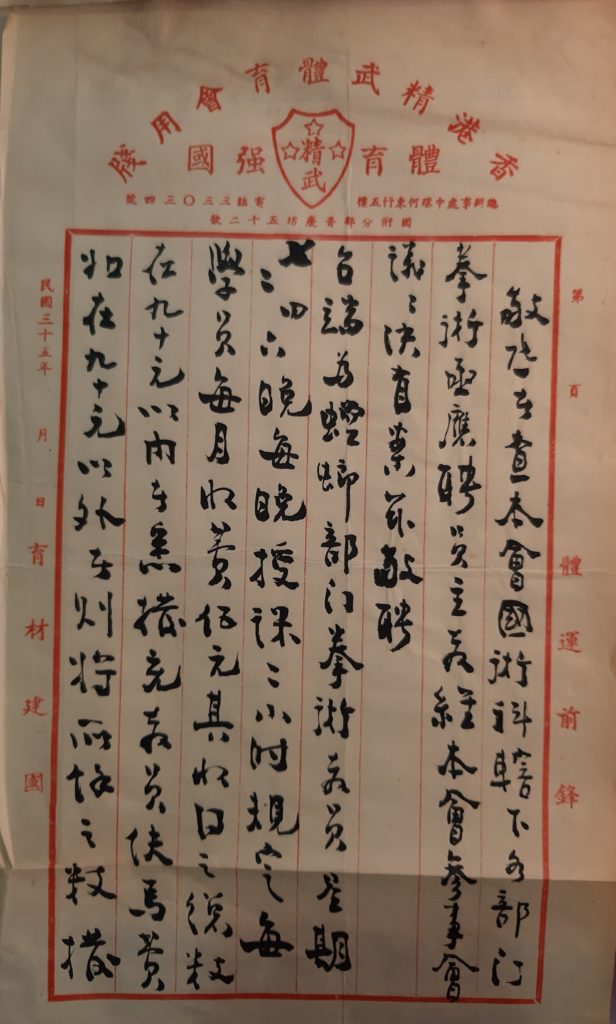 香港精武體育會用牋
體育強國
精武
總辦事處中環何東行五樓 電話三三〇三四號
國術分部普慶坊五十二號
第 頁
體運前鋒
敬啟者查本會國術科轄下各部門
拳術亟應聘員主教經本會參事會
議議決有案茲敬聘
台端為螳螂部門拳術教員星期
二四六晚每晚授課二小時規定每
學員每月收費伍元其收得之總數
在九十元以內者悉撥充教員伕馬費
如在九十元以外者則將所餘之數撥
民國三十五年 月 日
育材建國